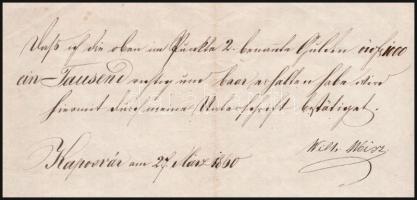 Daß ich die oben im Punkte 2. benannte Gulden
ein-Tausend richtig und baar erhalten habe wird
hiermit durch meine Unterschrift bestätiget.
Kaposvár am 27 März 1860
Weisz